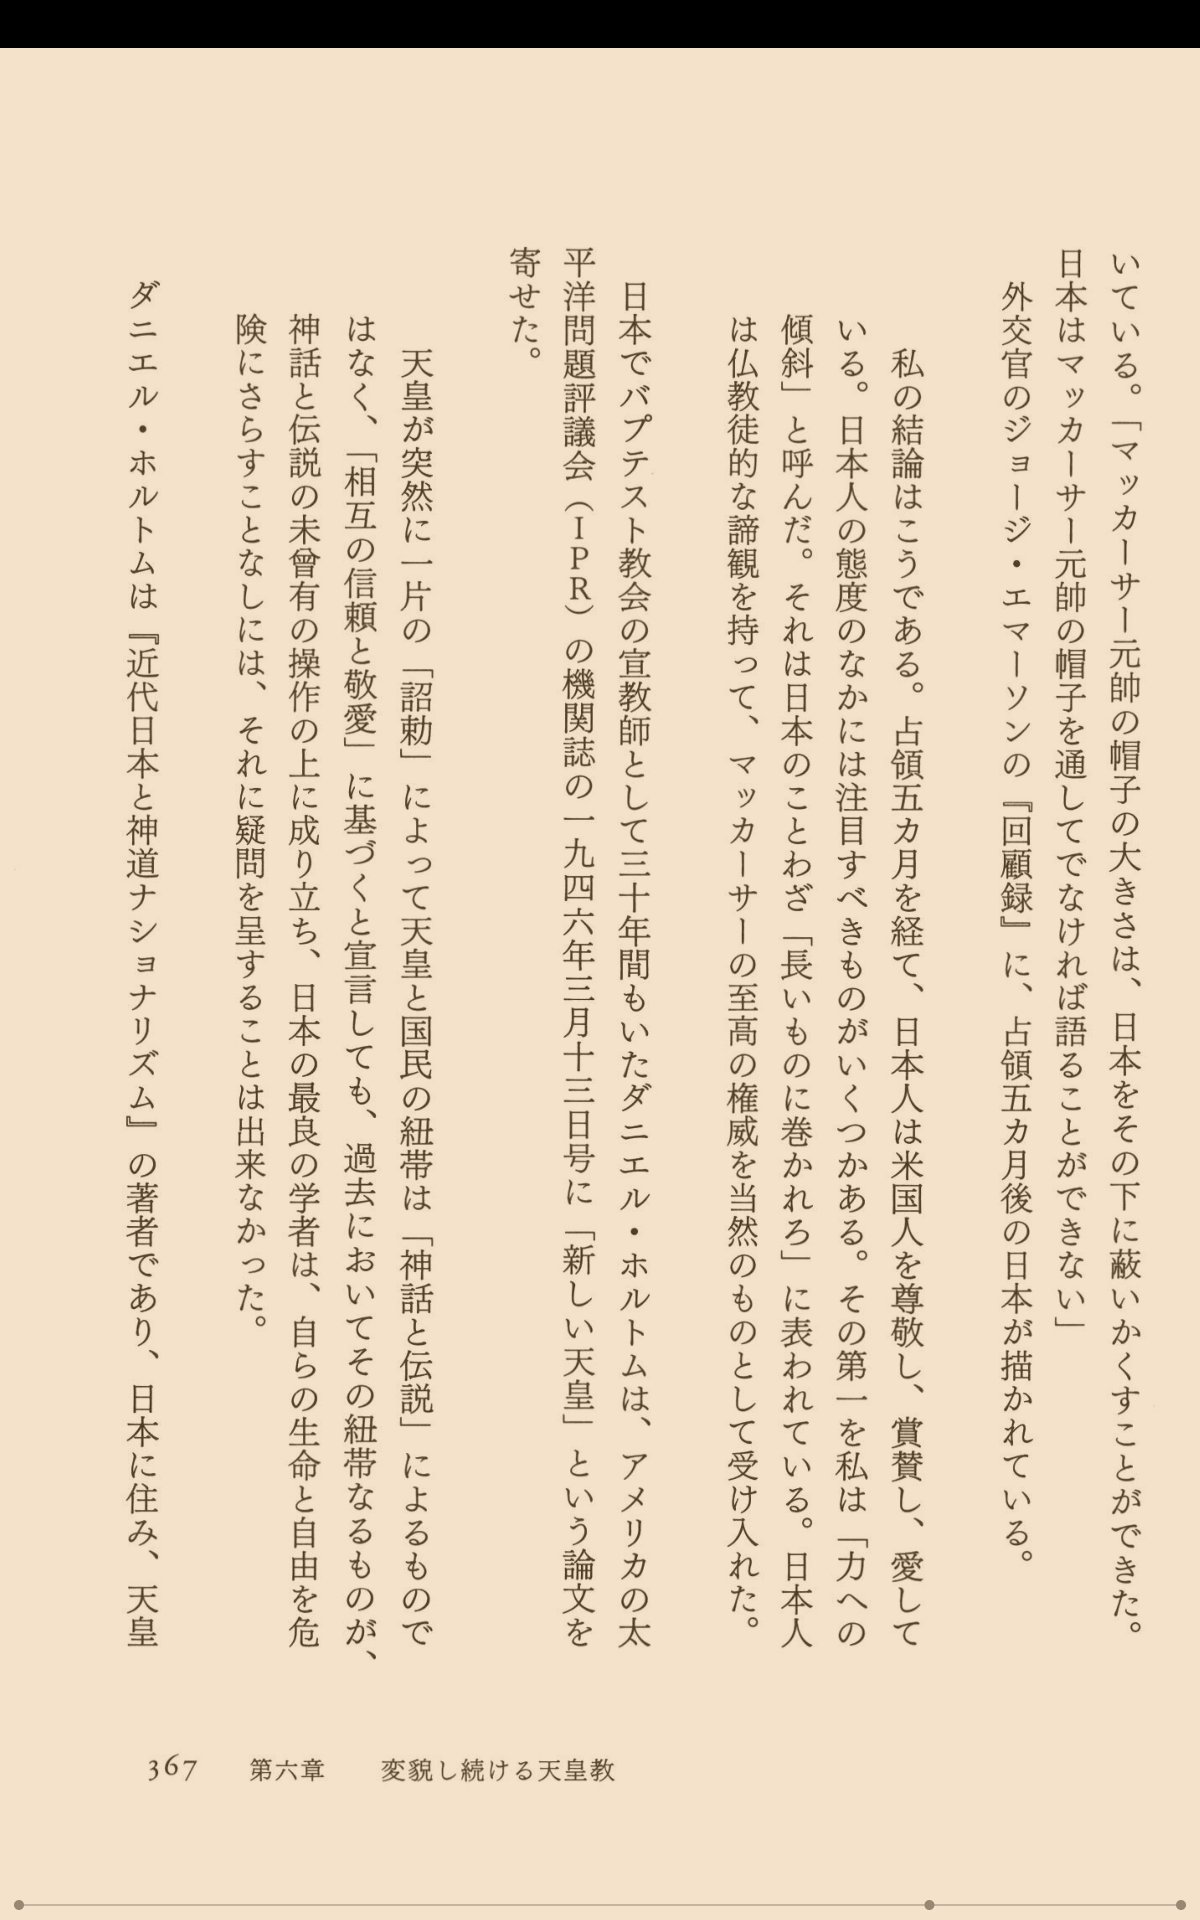 いている。「マッカーサー元帥の帽子の大きさは、日本をその下に蔽いかくすことができた。
日本はマッカーサー元帥の帽子を通してでなければ語ることができない」
外交官のジョージ・エマーソンの『回顧録』に、占領五カ月後の日本が描かれている。
私の結論はこうである。占領五カ月を経て、日本人は米国人を尊敬し、賞賛し、愛して
いる。日本人の態度のなかには注目すべきものがいくつかある。その第一を私は「力への
傾斜」と呼んだ。それは日本のことわざ「長いものに巻かれろ」に表われている。日本人
は仏教徒的な諦観を持って、マッカーサーの至高の権威を当然のものとして受け入れた。
日本でバプテスト教会の宣教師として三十年間もいたダニエル・ホルトムは、アメリカの太
平洋問題評議会（ＩＰＲ）の機関誌の一九四六年三月十三日号に「新しい天皇」という論文を
寄せた。
天皇が突然に一片の「詔勅」によって天皇と国民の紐帯は「神話と伝説」によるもので
はなく、「相互の信頼と敬愛」に基づくと宣言しても、過去においてその紐帯なるものが、
神話と伝説の未曾有の操作の上に成り立ち、日本の最良の学者は、自らの生命と自由を危
険にさらすことなしには、それに疑問を呈することは出来なかった。
ダニエル・ホルトムは『近代日本と神道ナショナリズム』の著者であり、日本に住み、天皇
367 第六章 変貌し続ける天皇教